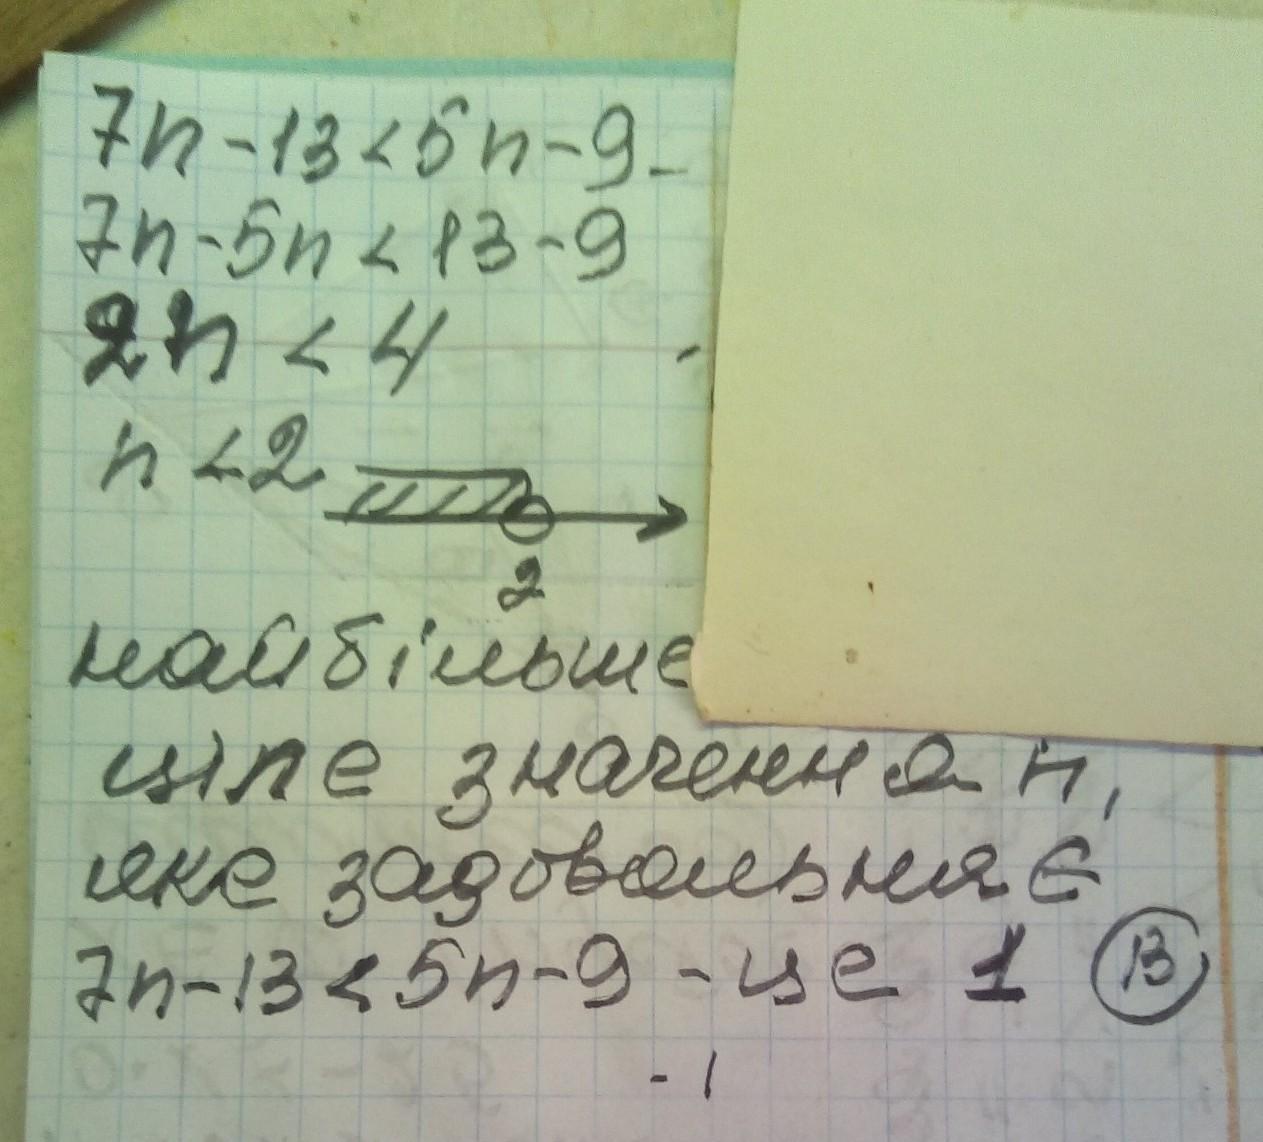 7n-13<5n-9
7n-5n<13-9
2n<4
n<2
2
найбільше
ціле значення n,
яке задовольняє
7n-13<5n-9 - це 1 В
- 1